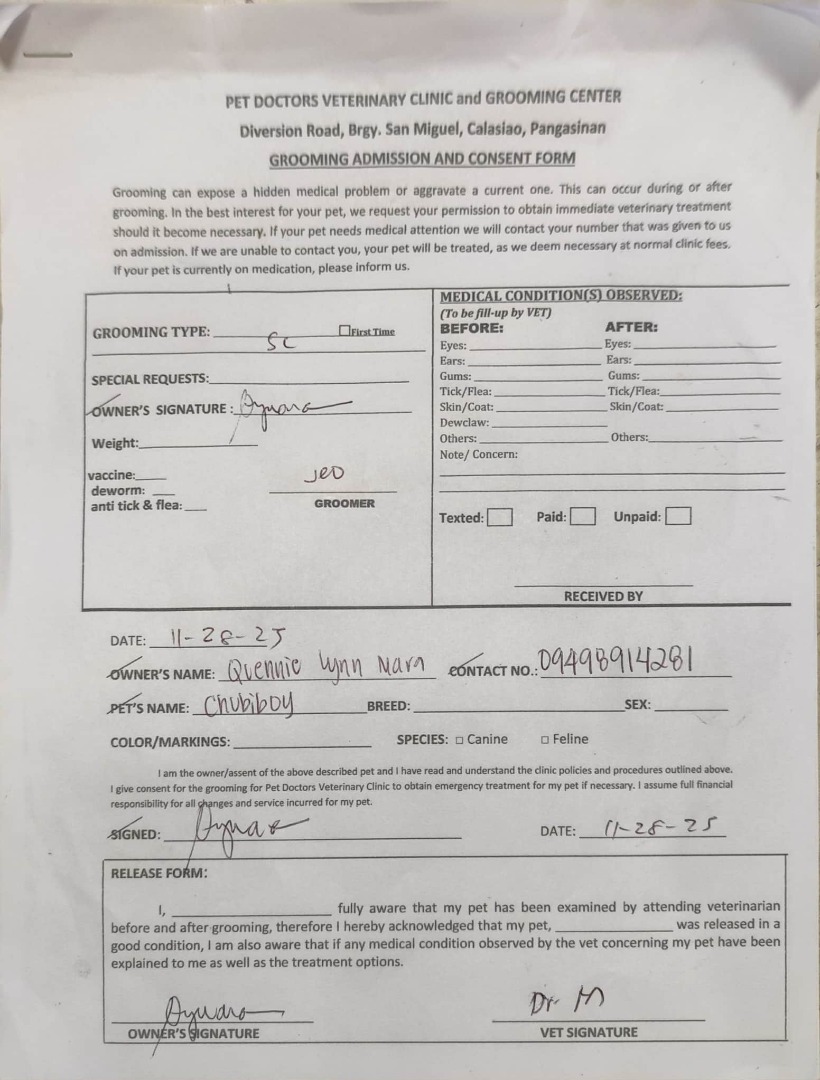 PET DOCTORS VETERINARY CLINIC and GROOMING CENTER
Diversion Road, Brgy. San Miguel, Calasiao, Pangasinan
GROOMING ADMISSION AND CONSENT FORM
Grooming can expose a hidden medical problem or aggravate a current one. This can occur during or after
grooming. In the best interest for your pet, we request your permission to obtain immediate veterinary treatment
should it become necessary. If your pet needs medical attention we will contact your number that was given to us
on admission. If we are unable to contact you, your pet will be treated, as we deem necessary at normal clinic fees.
If your pet is currently on medication, please inform us.
GROOMING TYPE: SC First Time
SPECIAL REQUESTS:
OWNER'S SIGNATURE :
Weight:
vaccine:
deworm:
anti tick & flea:
Jeo
GROOMER
MEDICAL CONDITION(S) OBSERVED:
(To be fill-up by VET)
BEFORE: AFTER:
Eyes: Eyes:
Ears: Ears:
Gums: Gums:
Tick/Flea: Tick/Flea:
Skin/Coat: Skin/Coat:
Dewclaw:
Others: Others:
Note/ Concern:
Texted: Paid: Unpaid:
RECEIVED BY
DATE: 11-28-25
OWNER'S NAME: Quennie Lynn Mara CONTACT NO.: 09498914281
PET'S NAME: Chubiboy BREED: SEX:
COLOR/MARKINGS: SPECIES: Canine Feline
I am the owner/assent of the above described pet and I have read and understand the clinic policies and procedures outlined above.
I give consent for the grooming for Pet Doctors Veterinary Clinic to obtain emergency treatment for my pet if necessary. I assume full financial
responsibility for all changes and service incurred for my pet.
SIGNED: DATE: 11-28-25
RELEASE FORM:
I, fully aware that my pet has been examined by attending veterinarian
before and after grooming, therefore I hereby acknowledged that my pet, was released in a
good condition, I am also aware that if any medical condition observed by the vet concerning my pet have been
explained to me as well as the treatment options.
Dr M
OWNER'S SIGNATURE VET SIGNATURE